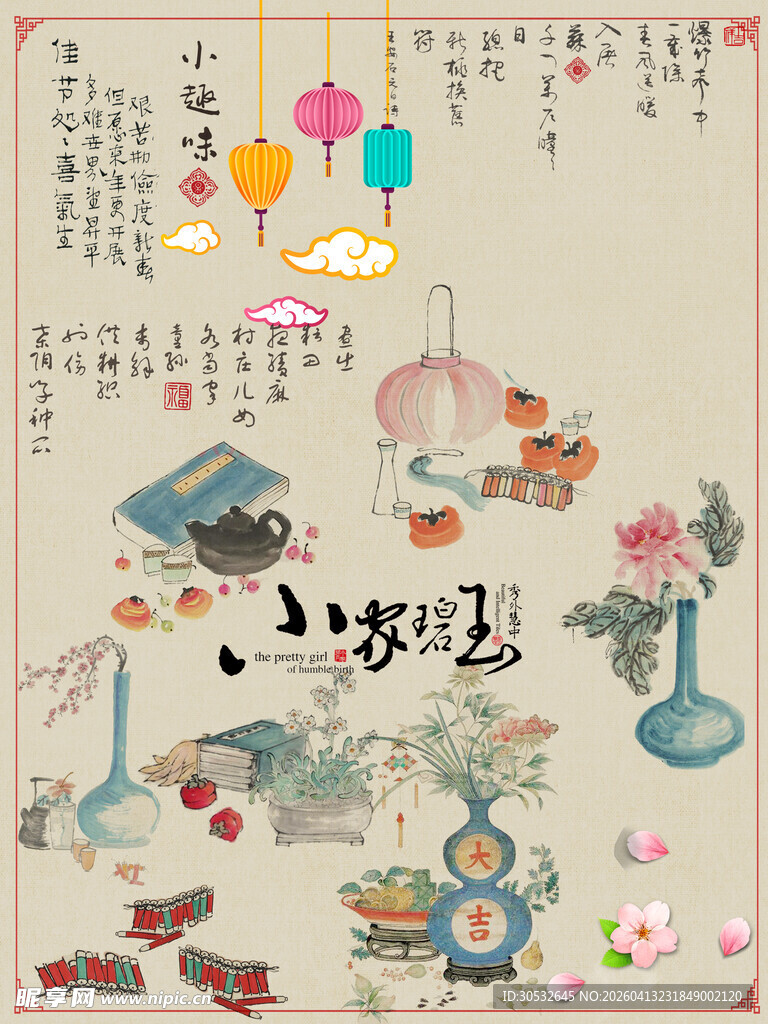 爆竹声中
一岁除
春风送暖
入屠
蘇
千门万户曈々
日
總把
新桃换舊
符
王安石元日诗
小趣味
艰苦勤儉度新春
但愿來年更开展
多难世界並昇平
佳节処々喜氣生
昼出
耘田
夜绩麻
村庄儿女
各当家
童孙
未解
供耕织
也傍
桑阴学种瓜
小家碧玉
秀外慧中
Beautiful
and Intelligent Tiles
the pretty girl
of humble birth
大
吉
昵享网 www.nipic.cn
ID:30532645 NO:20260413231849002120